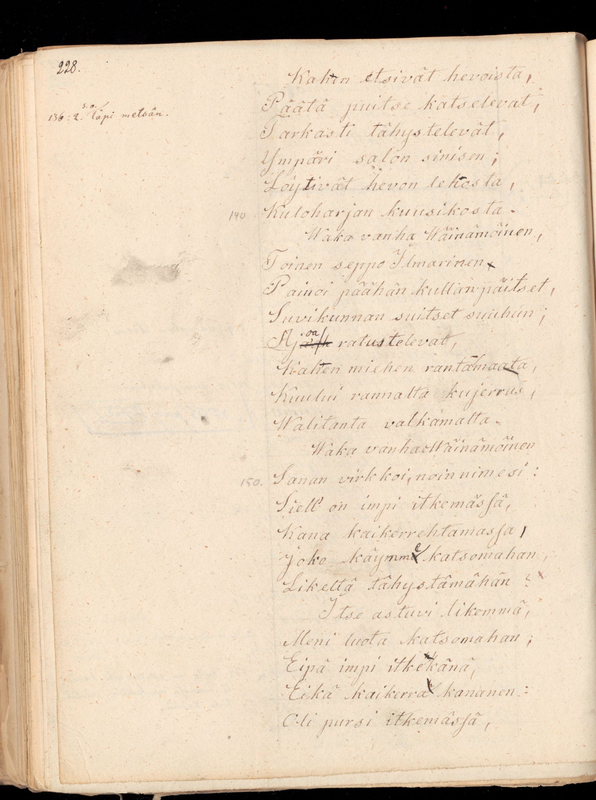 228.
136: 2. läpi metsän.
Kahen etsivät hevoista,
Päätä puitse katselevat,
Tarkasti tähystelevät,
Ympäri salon sinisen;
Löytivät hevon lehosta,
140. Kuloharjan kuusikosta.
Waka vanha Wäinämöinen,
Toinen seppo Ilmarinen
Painoi päähän kullanpäitset,
Suvikunnan suitset suuhun;
Ajoa ratustelevat,
Kahen miehen rantamaata,
Kuului rannalta kujerrus,
Walitanta valkamalta.
Waka vanha Wäinämöinen
150. Sanan virkkoi, noin nimesi:
Siell' on impi itkemässä,
Kana kaikerrehtamassa,
Joko käymme katsomahan,
Likettä tähystämähän?
Itse astuvi likemmä,
Meni luota katsomahan;
Eipä impi itkekänä,
Eikä kaikerra kananen:
Oli pursi itkemässä,